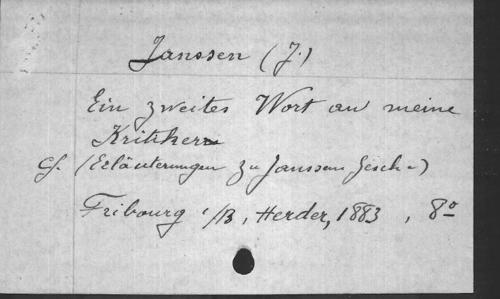 Janssen (J.)
Ein zweites Wort an meine
Kritiker
cf. (Erläuterungen zu Janssen Gesch.)
Fribourg i/B, Herder, 1883, 8º